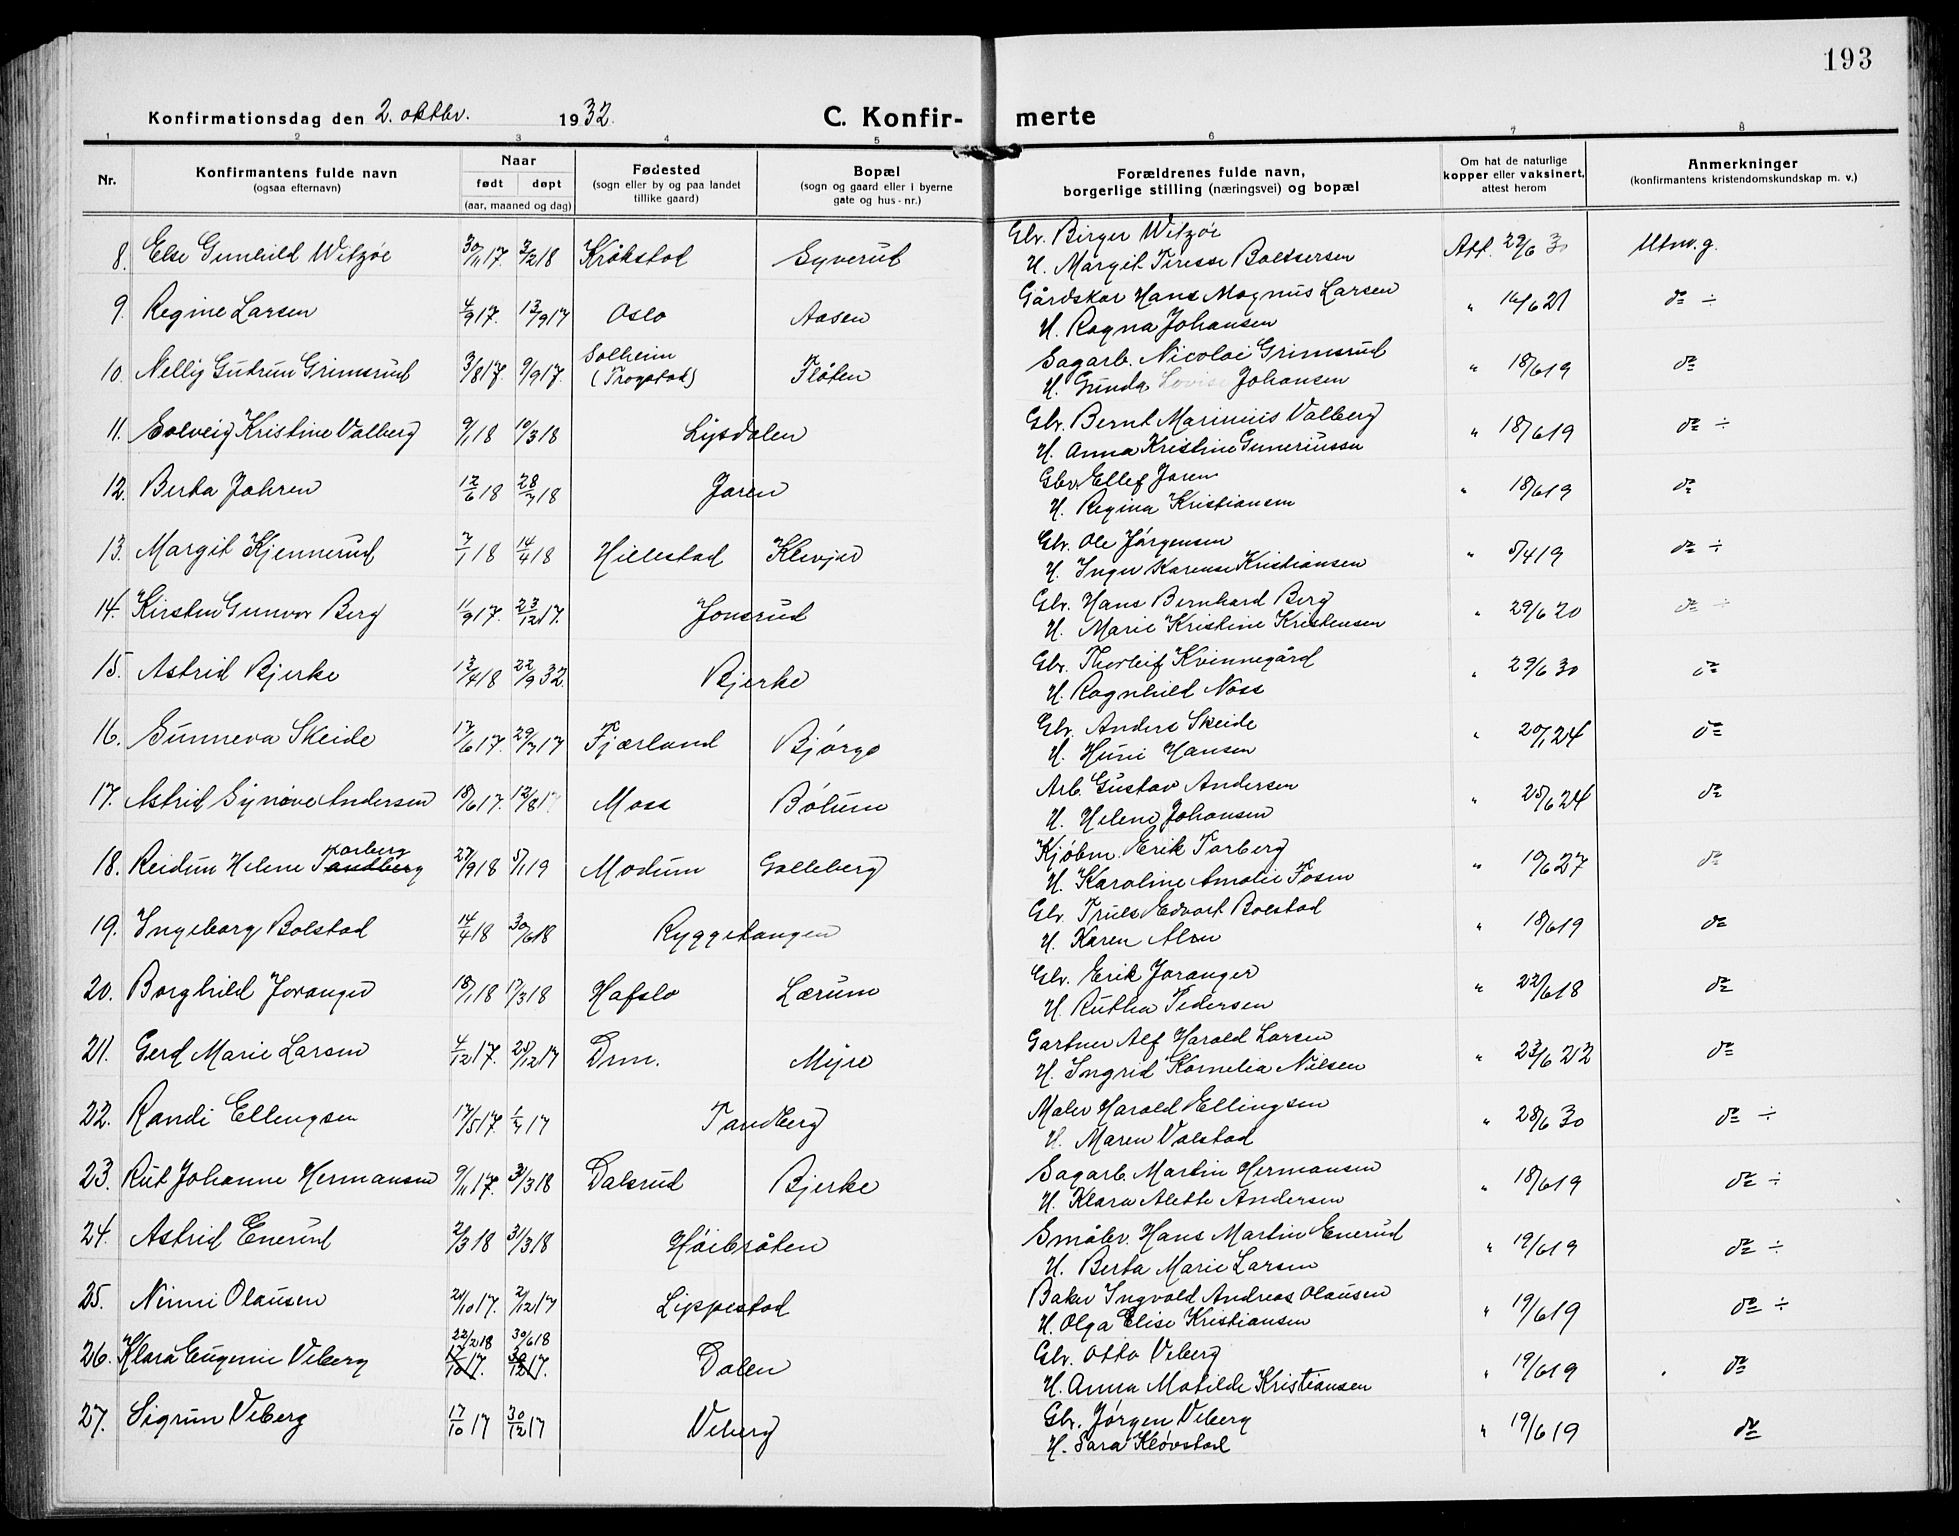 193
Konfirmationsdag den 2. oktbr. 1932. C. Konfir- merte
1 2 3 4 5 6 7 8
Nr. Konfirmantens fulde navn (ogsaa efternavn) Naar født døpt (aar, maaned og dag) Fødested (sogn eller by og paa landet tillike gaard) Bopæl (sogn og gaard eller i byerne gate og hus-nr.) Forældrenes fulde navn, borgerlige stilling (næringsvei) og bopæl Om hat de naturlige kopper eller vaksinert, attest herom Anmerkninger (konfirmantens kristendomskundskap m. v.)
8. Else Gunhild Witzøe 30/11 17. 3/2 18 Kråkstad Syverud Gbr. Birger Witzøe Att. 29/6 30 Utm. g.
H. Margit Terese Baltsersen
9. Regine Larsen 4/9 17. 13/9 17 Oslo Aasen Gårdskar Hans Magnus Larsen " 16/6 21 do ÷
H. Ragna Johansen
10. Nelly Gudrun Grimsrud 3/8 17. 9/9 17. Solheim (Trøgstad) Fløten Sagarb. Nicolai Grimsrud " 18/6 19 do
H. Gunda Lovise Johansen
11. Solveig Kristine Valberg 9/1 18 10/3 18 Lysdalen Gbr. Bernt Marinius Valberg " 18/6 19 do ÷
H. Anna Kristine Guneriussen
12. Berta Jahren 12/6 18 28/7 18 Jaren Gbr. Ellef Jaren " 18/6 19 do
H. Regina Kristiansen
13. Margit Kjennerud 7/1 18 14/4 18 Hillestad Klevjer Gbr. Ole Jørgensen " 5/4 19 do ÷
H. Inger Karense Kristiansen
14. Kirsten Gunvor Berg 11/9 17. 23/12 17. Jonsrud Gbr. Hans Bernhard Berg " 29/6 20 do ÷
H. Marie Kristine Kristensen
15. Astrid Bjerke 13/4 18 22/9 32. Bjerke Gbr. Thorleif Kvinnegård " 29/6 30 do
H. Ragnhild Noss
16. Sunneva Skeide 17/6 17. 29/7 17 Fjærland Bjørge Gbr. Anders Skeide " 20/1 24 do
H. Huni Hansen
17. Astrid Synøve Andersen 18/6 17. 12/8 17 Moss Bølum Arb. Gustav Andersen " 25/6 24 do
H. Helene Johansen
18. Reidun Helene Tandberg Torberg 27/9 18 5/1 19 Modum Golleberg Kjøbm. Erik Torberg " 10/6 27 do
H. Karoline Amalie Fosen
19. Ingeborg Bolstad 14/4 18 30/6 18 Ryggetangen Gbr. Truls Edvart Bolstad " 18/6 19 do
H. Karen Alm
20. Borghild Joranger 18/1 18 17/3 18 Hafslo Lærum Gbr. Erik Joranger " 22/6 18 do
H. Ruthea Pedersen
21. Gerd Marie Larsen 4/12 17. 25/12 17 Drm. Myre Gartner Alf Harald Larsen " 23/6 22 do
H. Ingrid Kornelia Nilsen
22. Randi Ellingsen 17/5 17. 1/7 17 Tandberg Maler Harald Ellingsen " 28/6 30 do ÷
H. Maren Valstad
23. Rut Johanne Hermansen 9/11 17. 31/3 18 Dalsrud Bjerke Sagarb. Martin Hermansen " 18/6 19 do ÷
H. Klara Alette Andersen
24. Astrid Enerud 2/3 18 31/3 18 Høibråten Småbr. Hans Martin Enerud " 19/6 19 do ÷
H. Berta Marie Larsen
25. Ninni Olausen 21/10 17. 2/12 17 Lippestad Baker Ingvald Andreas Olausen " 19/6 19 do ÷
H. Olga Elise Kristiansen
22/2 18 30/6 18
26. Klara Eugenie Viberg 17/10 17. 30/12 17. Dalen Gbr. Otto Viberg " 19/6 19 do
H. Anna Matilde Kristiansen
27. Sigrun Viberg 17/10 17 30/12 17 Viberg Gbr. Jørgen Viberg " 19/6 19 do
H. Sara Kløvstad